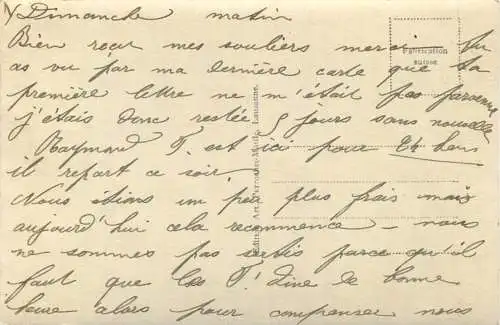 Dimanche matin
Bien reçu mes souliers merci. Tu
as vu par ma dernière carte que ta
première lettre ne m'était pas parvenue
j'étais donc restée 5 jours sans nouvelle
Raymond T. est ici pour 24 heures
il repart ce soir.
Nous étions un peu plus frais mais
aujourd'hui cela recommence – nous
ne sommes pas sortis parce qu'il
faut que les T! dîne de bonne
heure alors pour compenser nous
Fabrication
suisse
Perrochet-Matile, Lausanne.